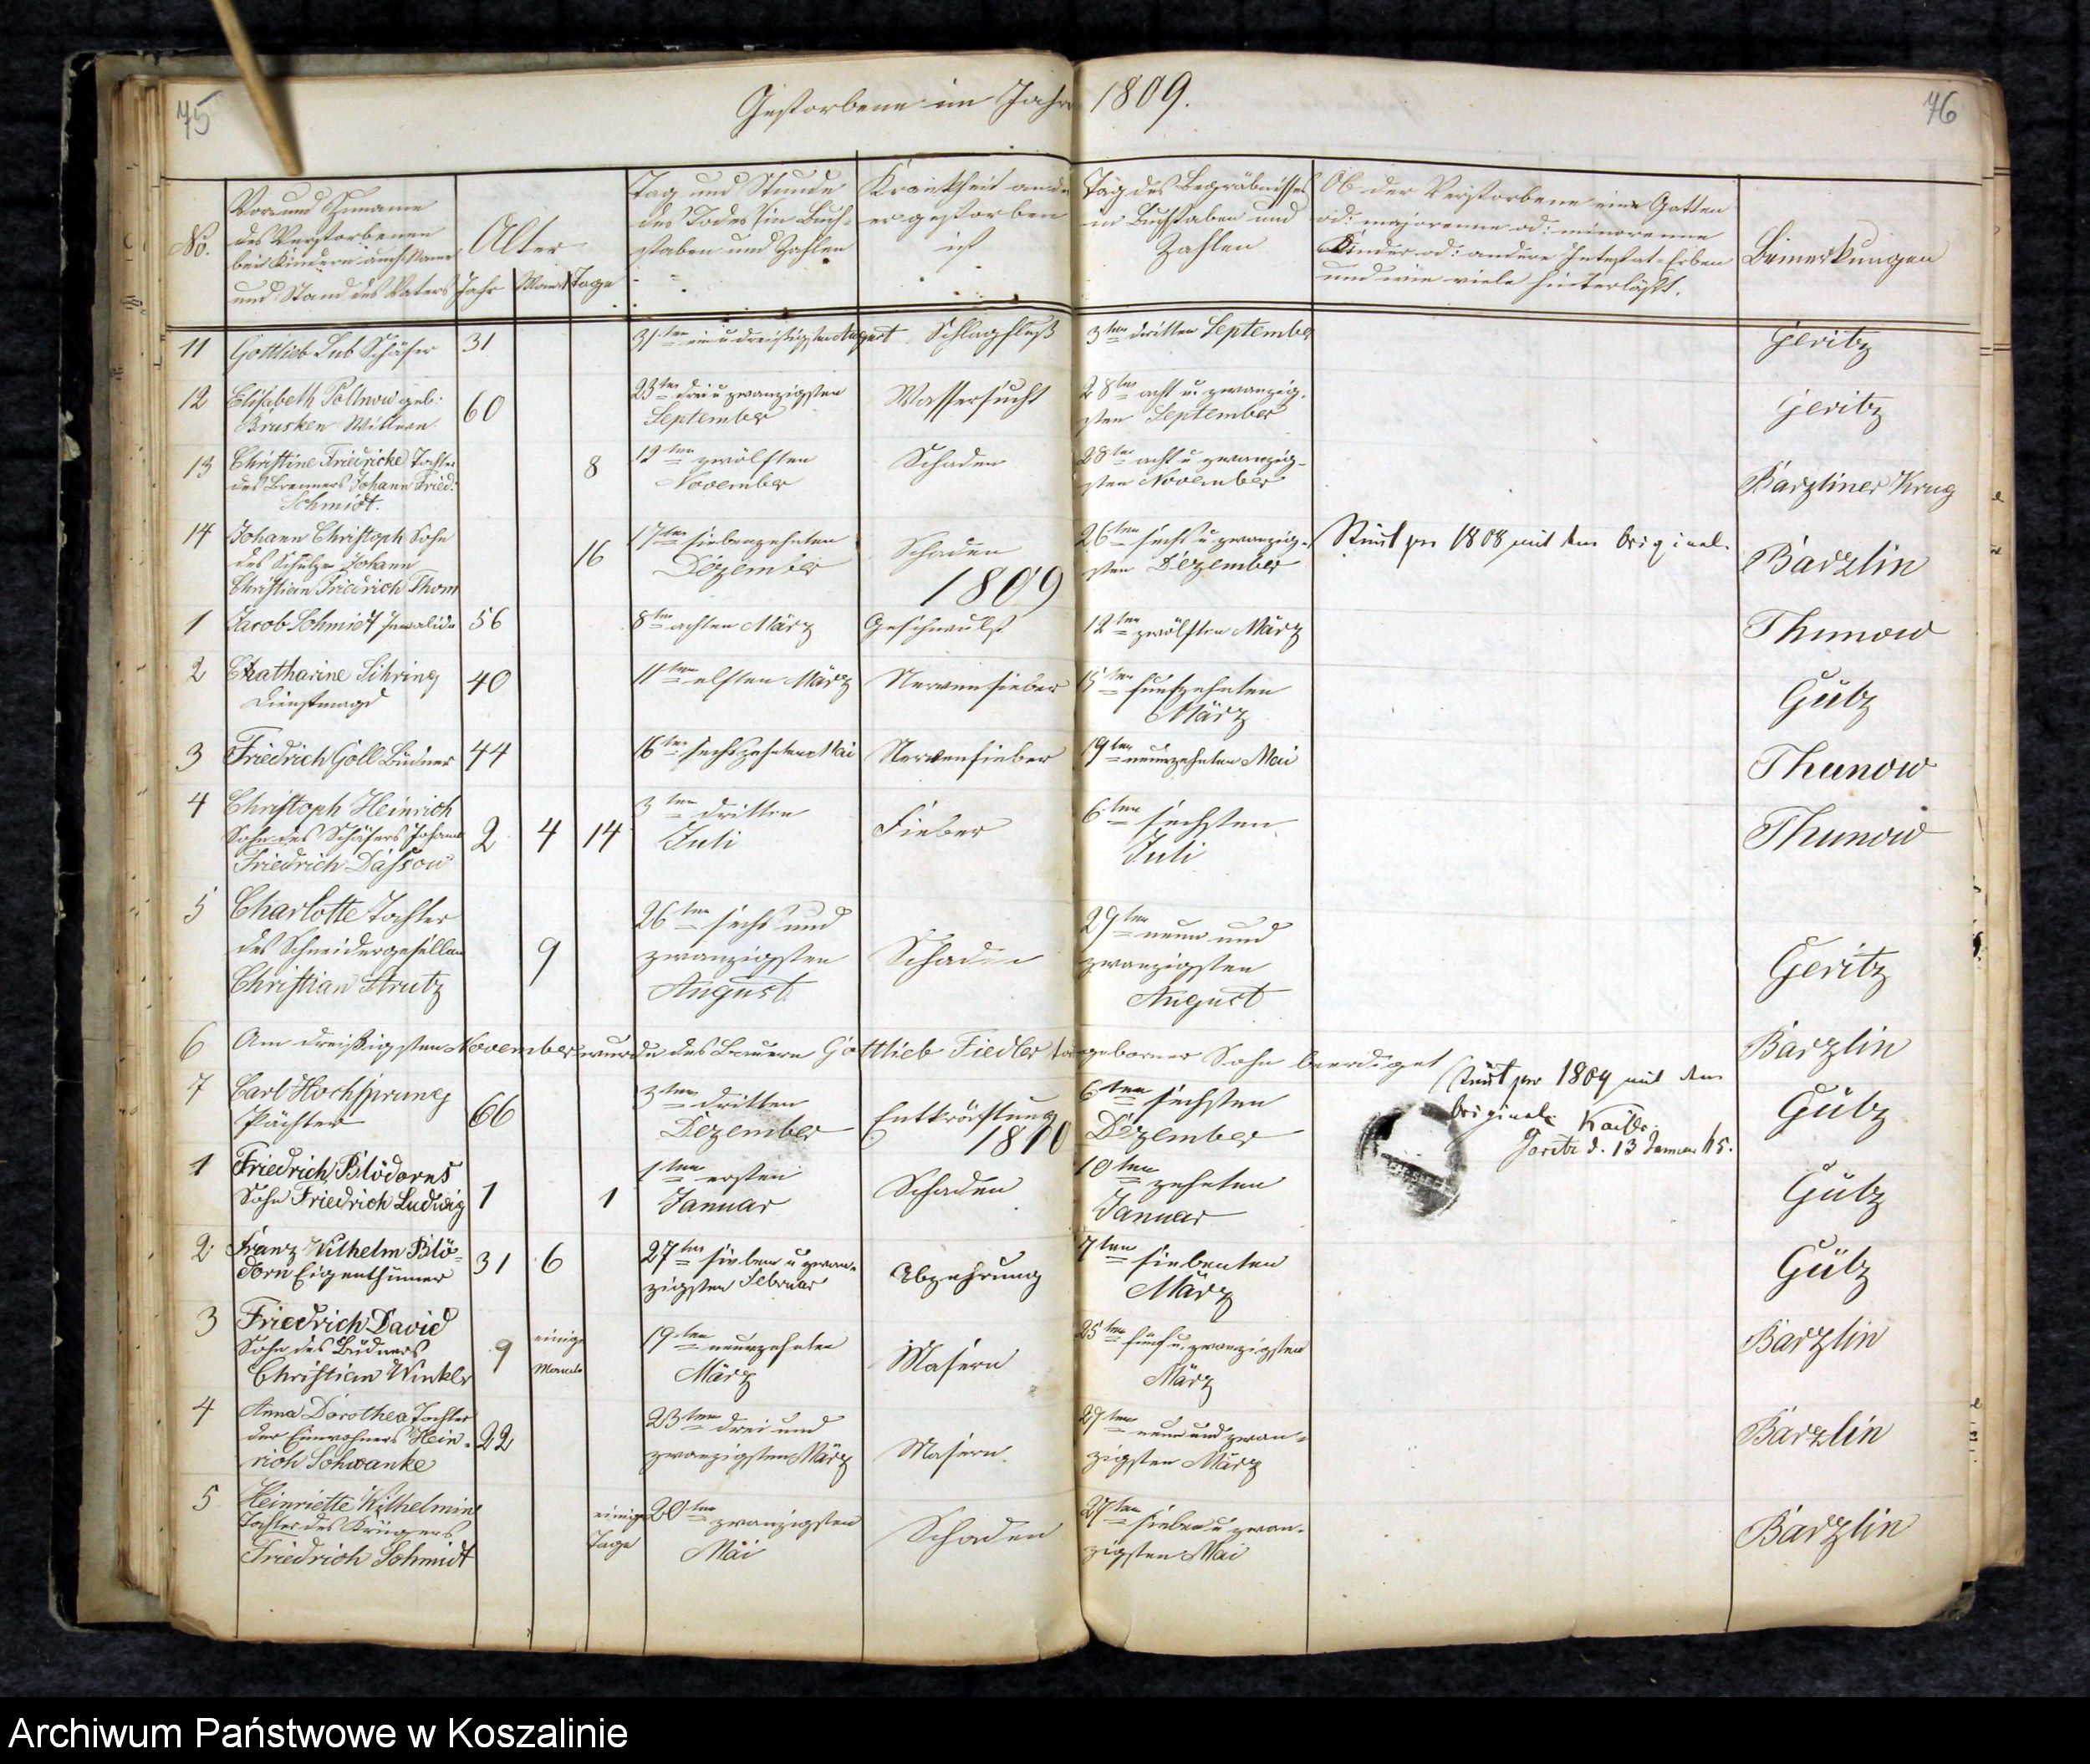 75
Gestorbene im Jahre 1809.
76
No.
Vor- und Zuname
des Verstorbenen
bei Kindern auch Name
und Stand des Vaters
Alter
Jahr Monat Tage
Tag und Stunde
des Todes in Buch-
staben und Zahlen
Krankheit an der
er gestorben
ist
Tag des Begräbnisses
in Buchstaben und
Zahlen
Ob der Verstorbene eine Gatten
od: majorenne od: minorenne
Kinder od: andere Intestat-Erben
und wie viele hinterläßt.
Bemerkungen
11 Gottlieb Lub Schäfer 31 31ten ein u dreißigsten August Schlagfluß 3ten dritten September Geritz
12 Elisabeth Pollnow geb: 60 23ten drei u zwanzigsten Wassersucht 28ten acht u. zwanzig- Geritz
Brüsken Wittwe. September sten September
13 Christine Friedricke Tochter 8 12ten zwölften Schaden 28ten acht u zwanzig- Barzliner Krug
des Brenners Johann Fried: November sten November
Schmidt.
14 Johann Christoph Sohn 16 17ten siebenzehnten Schaden 26ten sechs u zwanzig- Stimt pro 1808 mit dem Original. Barzlin
des Schulzen Johann Dezember sten Dezember
Christian Friedrich Thom
1809
1 Jacob Schmidt Invalide 56 8ten achten März Geschwulst 12ten zwölften März Thunow
2 Chatharine Sihring 40 11ten elften März Nervenfieber 15ten fünfzehnten Gülz
Dienstmagd März
3 Friedrich Goll Büdner 44 16ten sechszehnten Mai Nervenfieber 19ten neunzehnten Mai Thunow
4 Christoph Heinrich 2 4 14 3ten dritten Fieber 6ten sechsten Thunow
Sohn des Schäfers Johann Juli Juli
Friedrich Dassow
5 Charlotte Tochter 9 26ten sechs und Schaden 29ten neun und Geritz
des Schneidergesellen zwanzigsten zwanzigsten
Christian Strutz August August
6 Am dreißigsten November wurde des Bauern Gottlieb Fiedler todgeborner Sohn beerdiget Barzlin
7 Carl Hochsprung 66 3ten dritten Entkräftung 6ten sechsten Gülz
Pächter Dezember Dezember
Stimt pro 1809 mit dem
Original.
Geritz d. 13 Januar 15.
1810
1 Friedrich Blödorns 1 1 1ten ersten Schaden 10ten zehnten Gülz
Sohn Friedrich Ludwig Januar Januar
2 Franz Wilhelm Blö- 31 6 27ten sieben u zwan- Abzehrung 7ten siebenten Gülz
dorn Eigenthümer zigsten Februar März
3 Friedrich David 9 einige 19ten neunzehnten Masern 25ten fünf u. zwanzigsten Barzlin
Sohn des Büdners Monate März März
Christian Winkler
4 Anna Dorothea Tochter 22 23ten drei und Masern. 29ten neun und zwan- Barzlin
des Einwohners Hein- zwanzigsten März zigsten März
rich Schwanke
5 Heinriette Wilhelmine einige 20ten zwanzigsten Schaden 27ten sieben u zwan- Barzlin
Tochter des Krügers Tage Mai zigsten Mai
Friedrich Schmidt
Archiwum Państwowe w Koszalinie